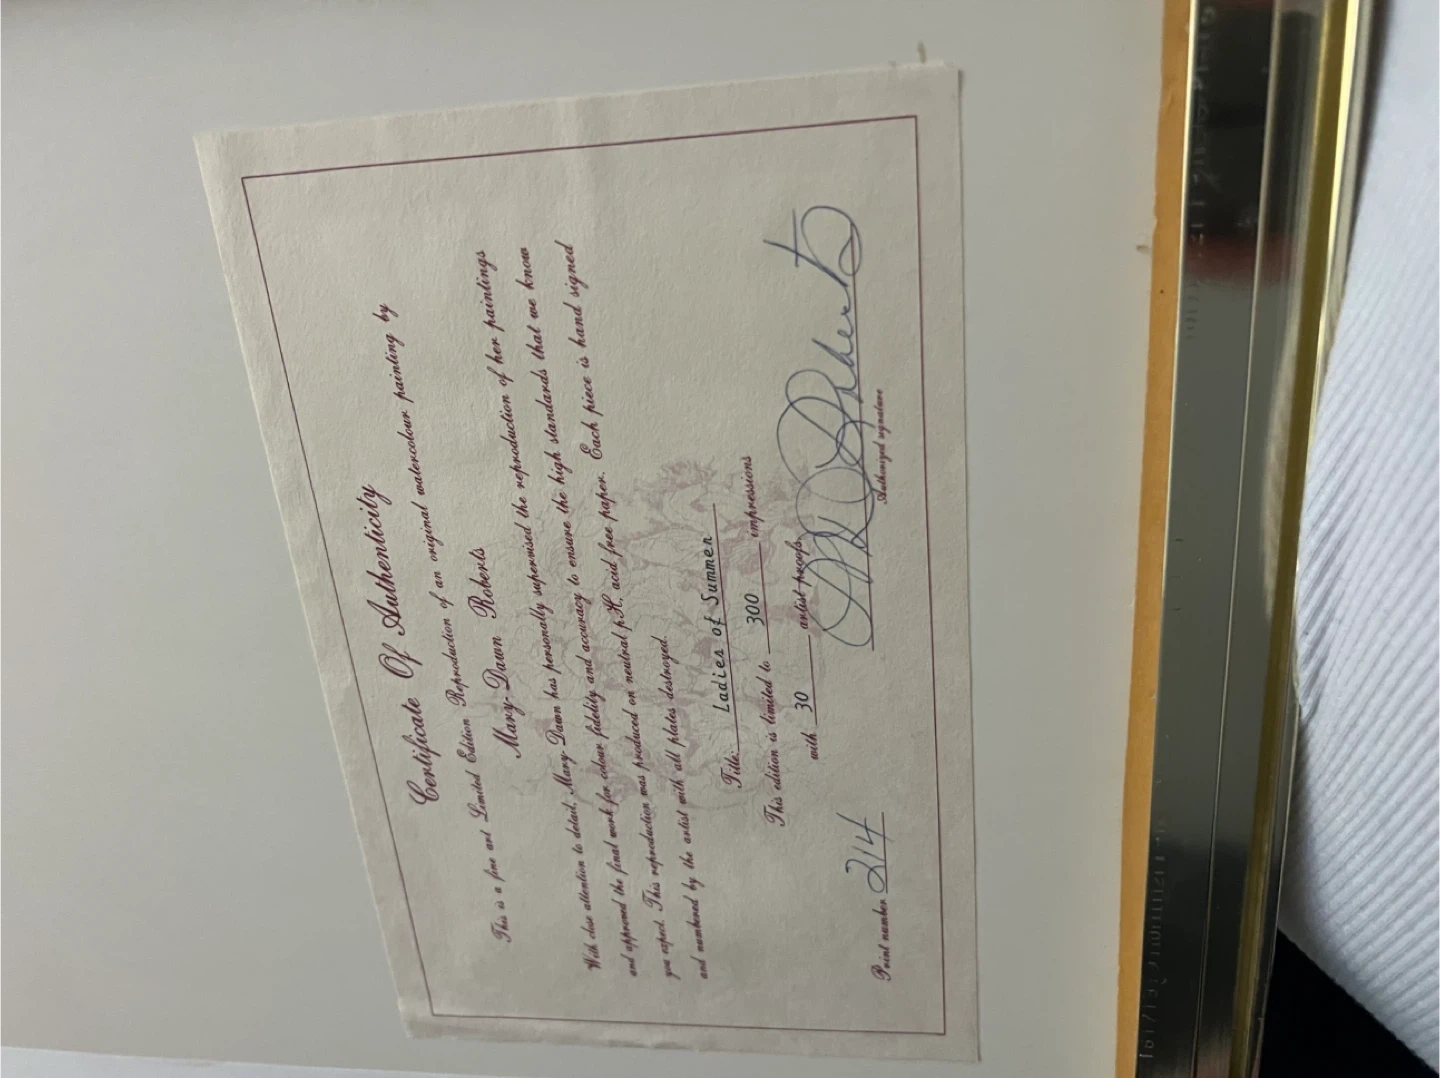 Certificate Of Authenticity
This is a fine art Limited Edition Reproduction of an original watercolour painting by
Mary-Dawn Roberts
With close attention to detail, Mary-Dawn has personally supervised the reproduction of her paintings
and approved the final work for colour fidelity and accuracy to ensure the high standards that we know
you expect. This reproduction was produced on neutral p.H. acid free paper. Each piece is hand signed
and numbered by the artist with all plates destroyed.
Title: Ladies of Summer
This edition is limited to 300 impressions
with 30 artist proofs.
Print number 214
Authorized signature